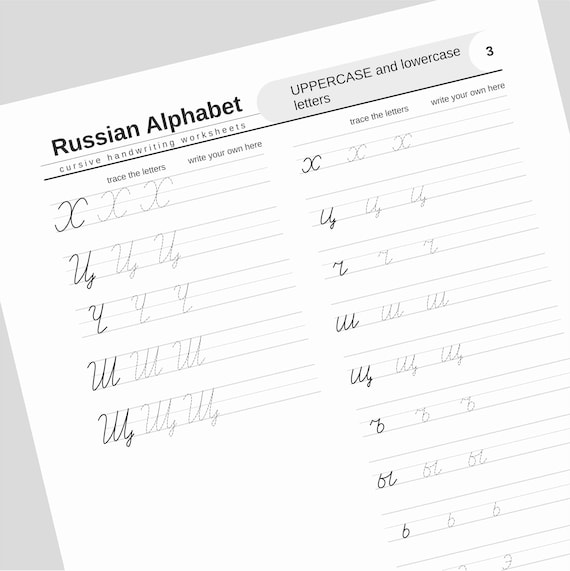 Russian Alphabet
cursive handwriting worksheets
UPPERCASE and lowercase
letters
3
trace the letters write your own here
Х Х Х
Ц Ц Ц
Ч Ч Ч
Ш Ш Ш
Щ Щ Щ
trace the letters write your own here
х х х
ц ц ц
ч ч ч
ш ш ш
щ щ щ
ъ ъ ъ
ы ы ы
ь ь ь
э э